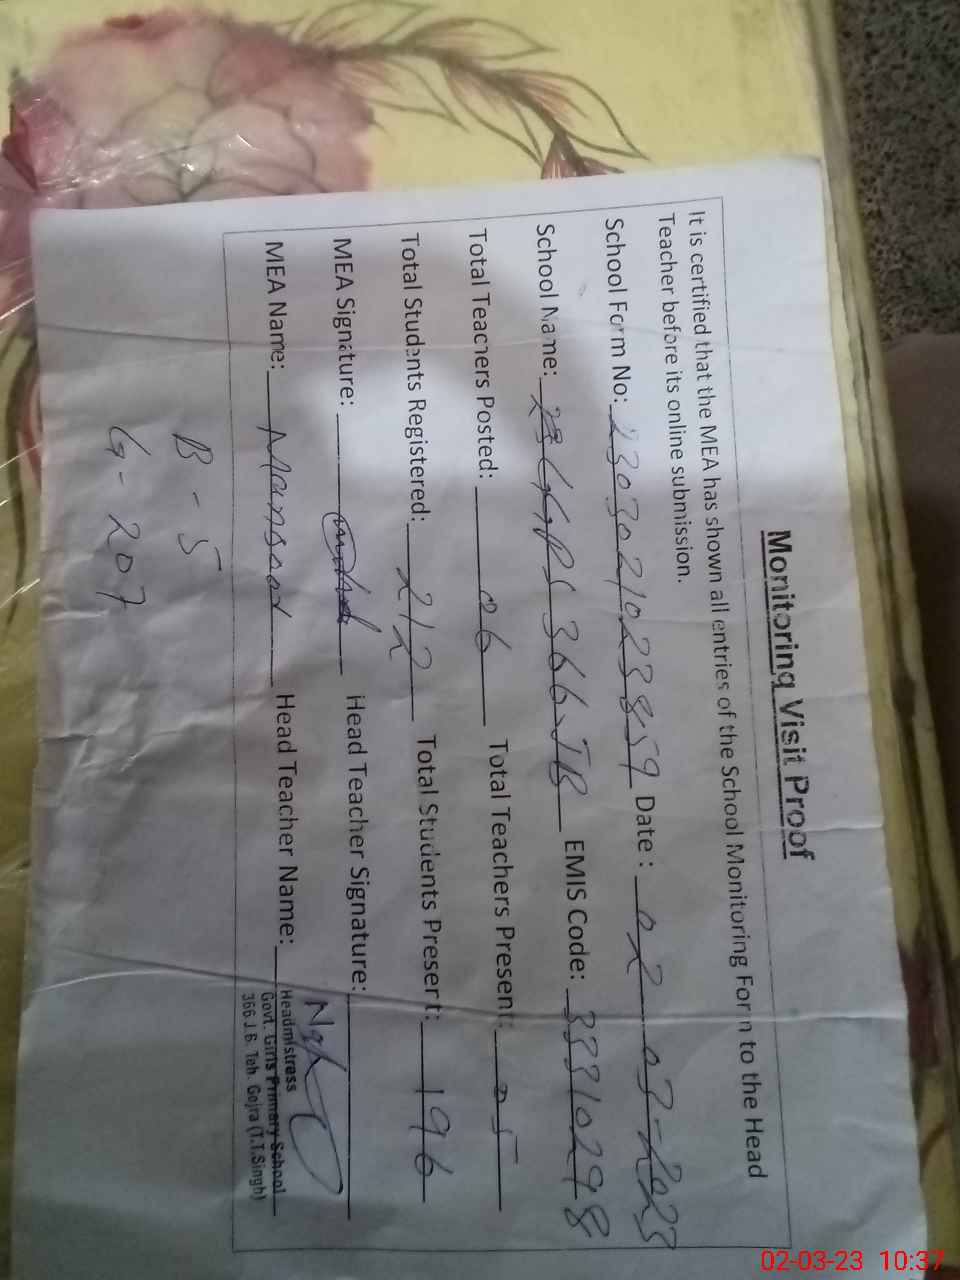 Monitoring Visit Proof
It is certified that the MEA has shown all entries of the School Monitoring Form to the Head
Teacher before its online submission.
School Form No: 2303021023859 Date: 02 03-2023
School Name: GGPS 366 JB EMIS Code: 33310298
Total Teachers Posted: 06 Total Teachers Present: 05
Total Students Registered: 212 Total Students Present: 196
MEA Signature: Head Teacher Signature:
MEA Name: Mansood Head Teacher Name:
Headmistress
Govt. Girls Primary School
366 J.B. Teh. Gojra (T.T.Singh)
B - 5
G - 207
02-03-23 10:37